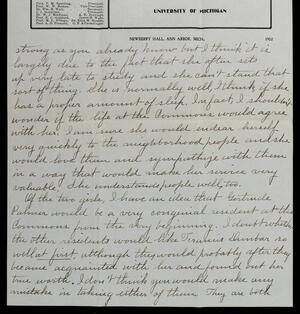 UNIVERSITY OF MICHIGAN
NEWBERRY HALL, ANN ARBOR, MICH. 190
strong as you already know but I think it is
largely due to the fact that she often sits
up very late to study and she can't stand that
sort of thing. She is normally well, I think if she
has a proper amount of sleep. In fact, I shouldn't
wonder if the life at the Commons would agree
with her. I am sure she would endear herself
very quickly to the neighborhood people and she
would love them and sympathize with them
in a way that would make her service very
valuable. She understands people well, too.
Of the two girls, I have an idea that Gertrude
Palmer would be a very congenial resident at the
Commons from the very beginning. I doubt whether
the other residents would like Dunbar so
well at first although they would probably after they
became acquainted with her and found out her
true worth. I don't think you would make any
mistake in taking either of them. They are both